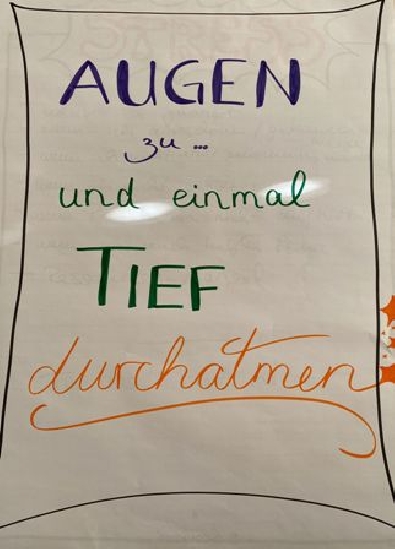 AUGEN
zu...
und einmal
TIEF
durchatmen